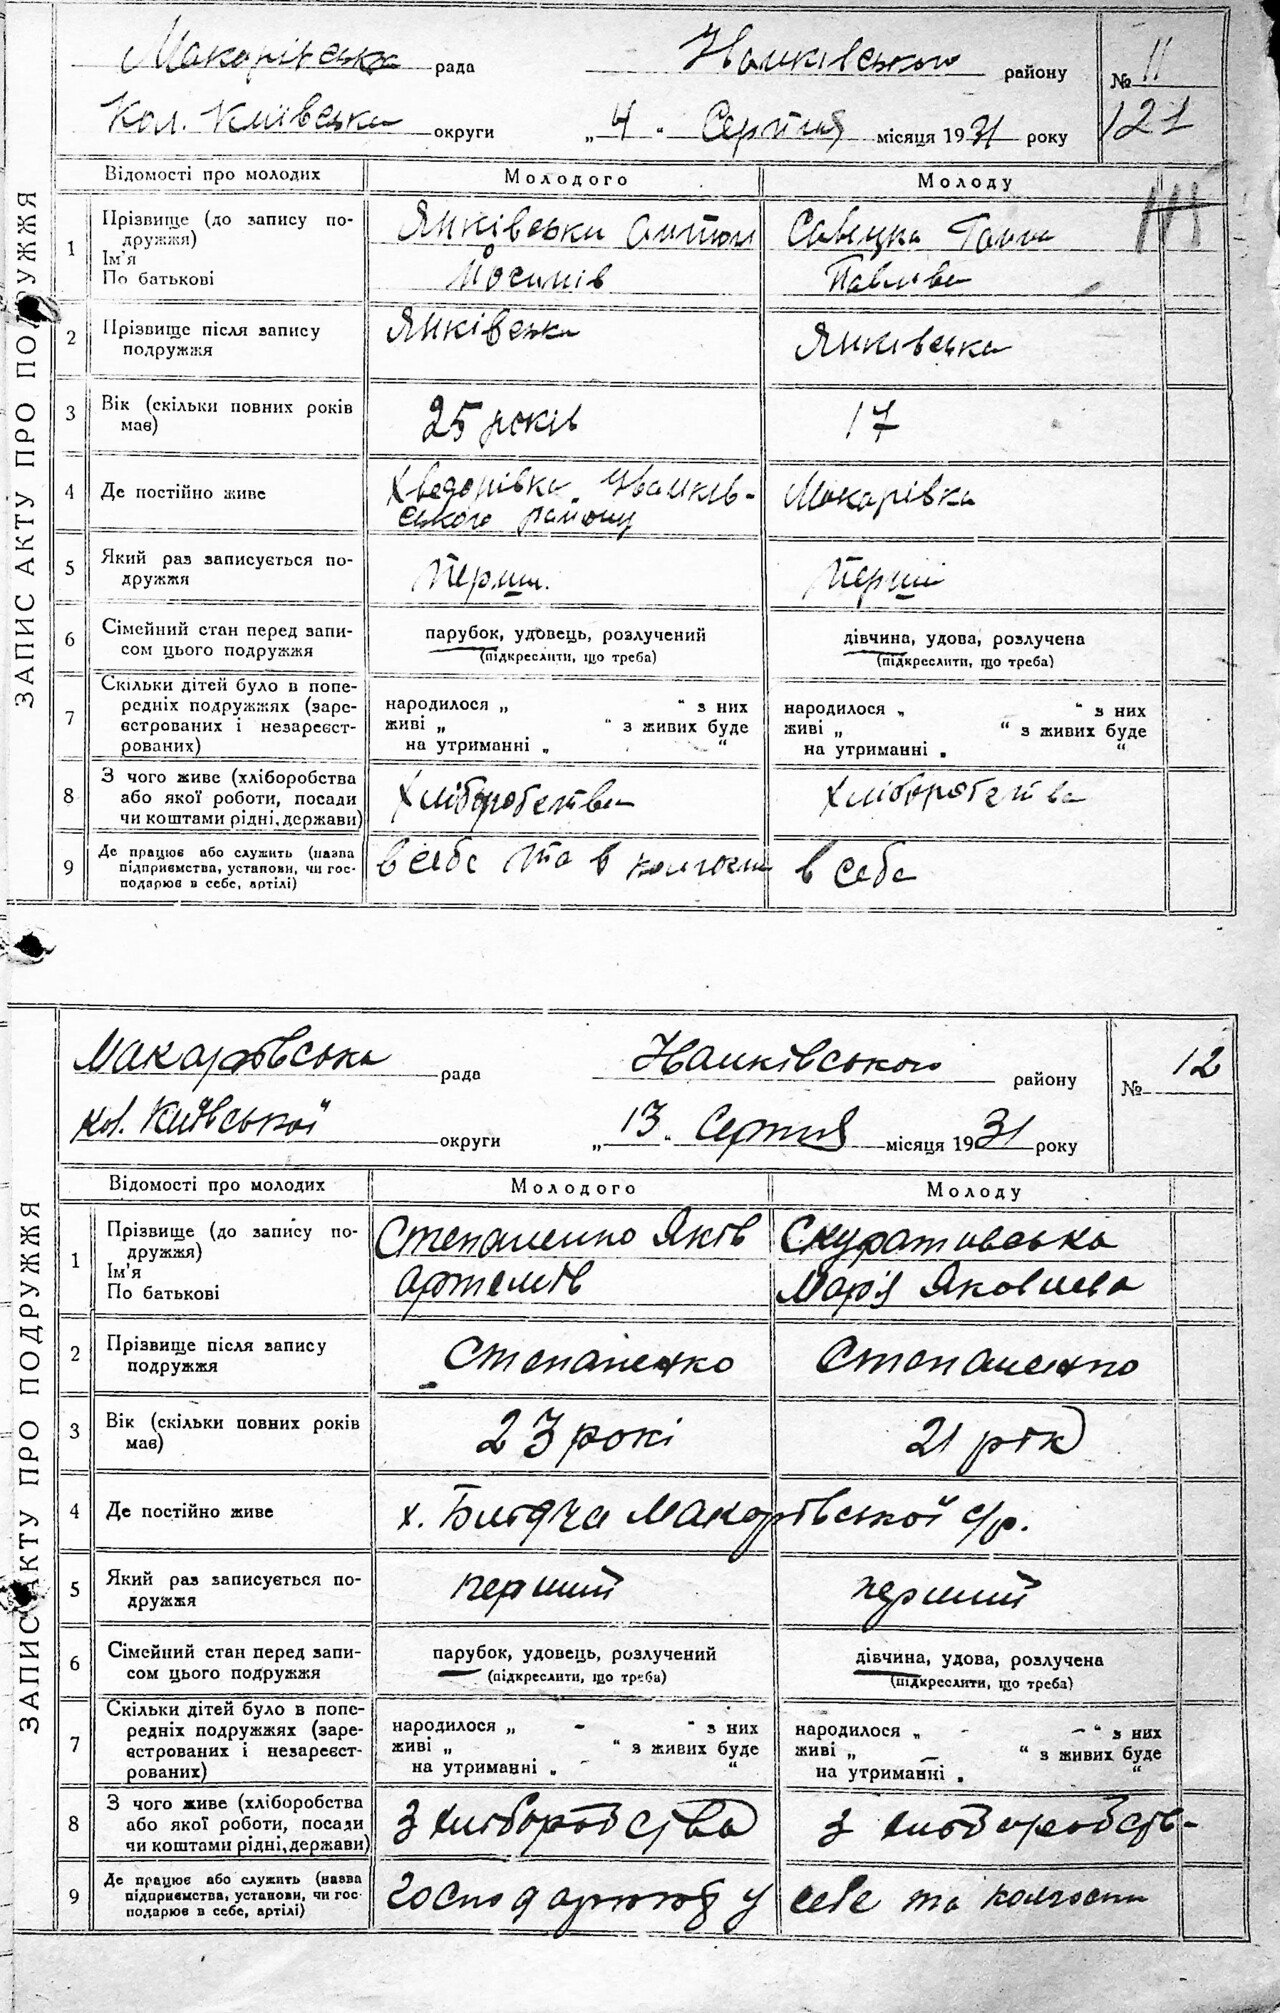 ЗАПИС АКТУ ПРО ПОДРУЖЖЯ
Макарівська рада Іванківського району № 11
Кол. Київська округи „4“ Серпня місяця 1931 року 121
Відомості про молодих Молодого Молоду
1 Прізвище (до запису по- Янківськи Антон Савецка Ганна
дружжя)
Ім’я
По батькові Йосипів Павлива
2 Прізвище після запису Янківськи Янківська
подружжя
3 Вік (скільки повних років 25 років 17
має)
4 Де постійно живе Хведорівка Іванків- Макарівка
ського району
5 Який раз записується по- Перши. Перши
дружжя
6 Сімейний стан перед запи- парубок, удовець, розлучений дівчина, удова, розлучена
сом цього подружжя (підкреслити, що треба) (підкреслити, що треба)
7 Скільки дітей було в попе-
редніх подружжях (заре- народилося „ “ з них народилося „ “ з них
єстрованих і незареєст- живі „ “ з живих буде живі „ “ з живих буде
рованих) на утриманні „ “ на утриманні „ “
8 З чого живе (хліборобства Хліборобства Хліборобства
або якої роботи, посади
чи коштами рідні, держави)
9 Де працює або служить (назва в себе та в колгоспи в себе
підприємства, установи, чи гос-
подарює в себе, артілі)
ЗАПИС АКТУ ПРО ПОДРУЖЖЯ
Макарівська рада Іванківського району № 12
кол. Київської округи „13“ Серпня місяця 1931 року
Відомості про молодих Молодого Молоду
1 Прізвище (до запису по- Степаненко Яків Скуративська
дружжя)
Ім’я Артемів Марія Яковлева
По батькові
2 Прізвище після запису Степаненко Степаненко
подружжя
3 Вік (скільки повних років 23 рокі 21 рік
має)
4 Де постійно живе х. Блідча Макарівської с/р.
5 Який раз записується по- перший перший
дружжя
6 Сімейний стан перед запи- парубок, удовець, розлучений дівчина, удова, розлучена
сом цього подружжя (підкреслити, що треба) (підкреслити, що треба)
7 Скільки дітей було в попе-
редніх подружжях (заре- народилося „ - “ з них народилося „ - “ з них
єстрованих і незареєст- живі „ “ з живих буде живі „ “ з живих буде
рованих) на утриманні „ - “ на утриманні „ “
8 З чого живе (хліборобства з хліборобства з хліборобств-
або якої роботи, посади
чи коштами рідні, держави)
9 Де працює або служить (назва господарюют у себе та колгоспи
підприємства, установи, чи гос-
подарює в себе, артілі)